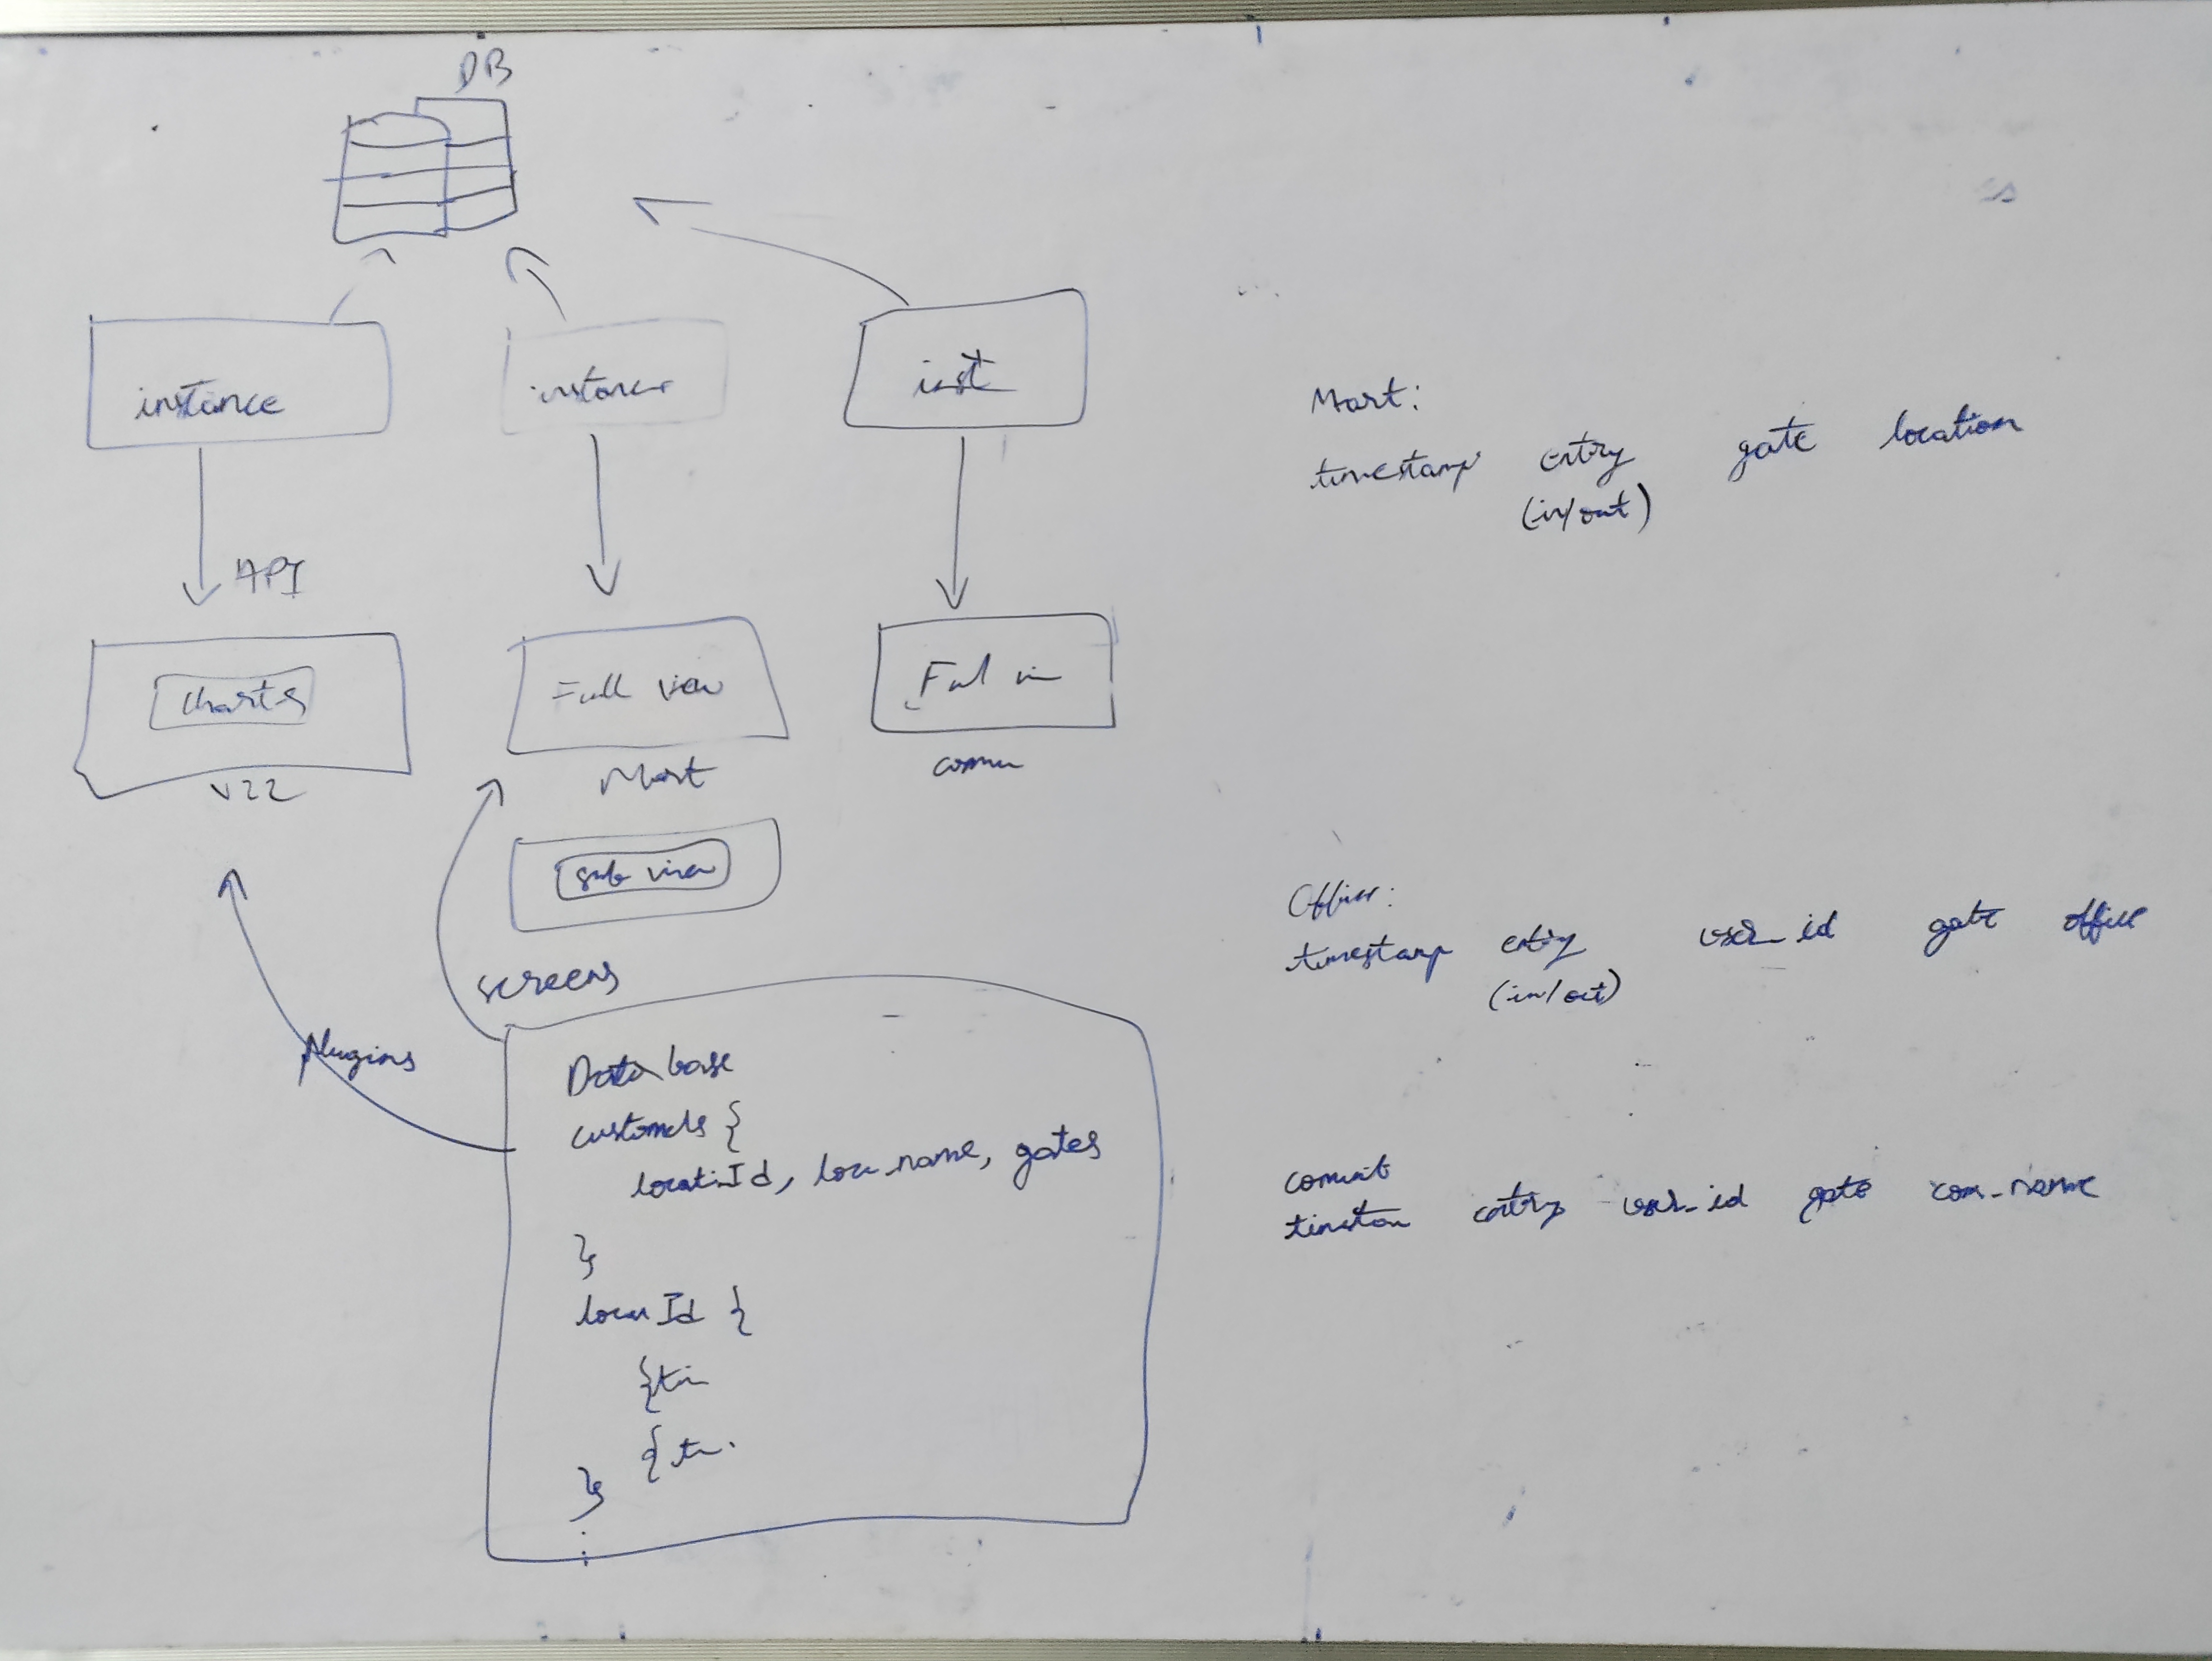 DB
instance
instance
inst
API
Charts
Full view
V22
Mart
comm
sub view
screens
plugins
Database
customers {
locatiId, loc_name, gates
}
locanId {
{tim
{tm.
}
:
Mart:
timestamp entry gate location
(in/out)
Office:
timestamp entry user_id gate office
(in/out)
entry user_id gate com_name